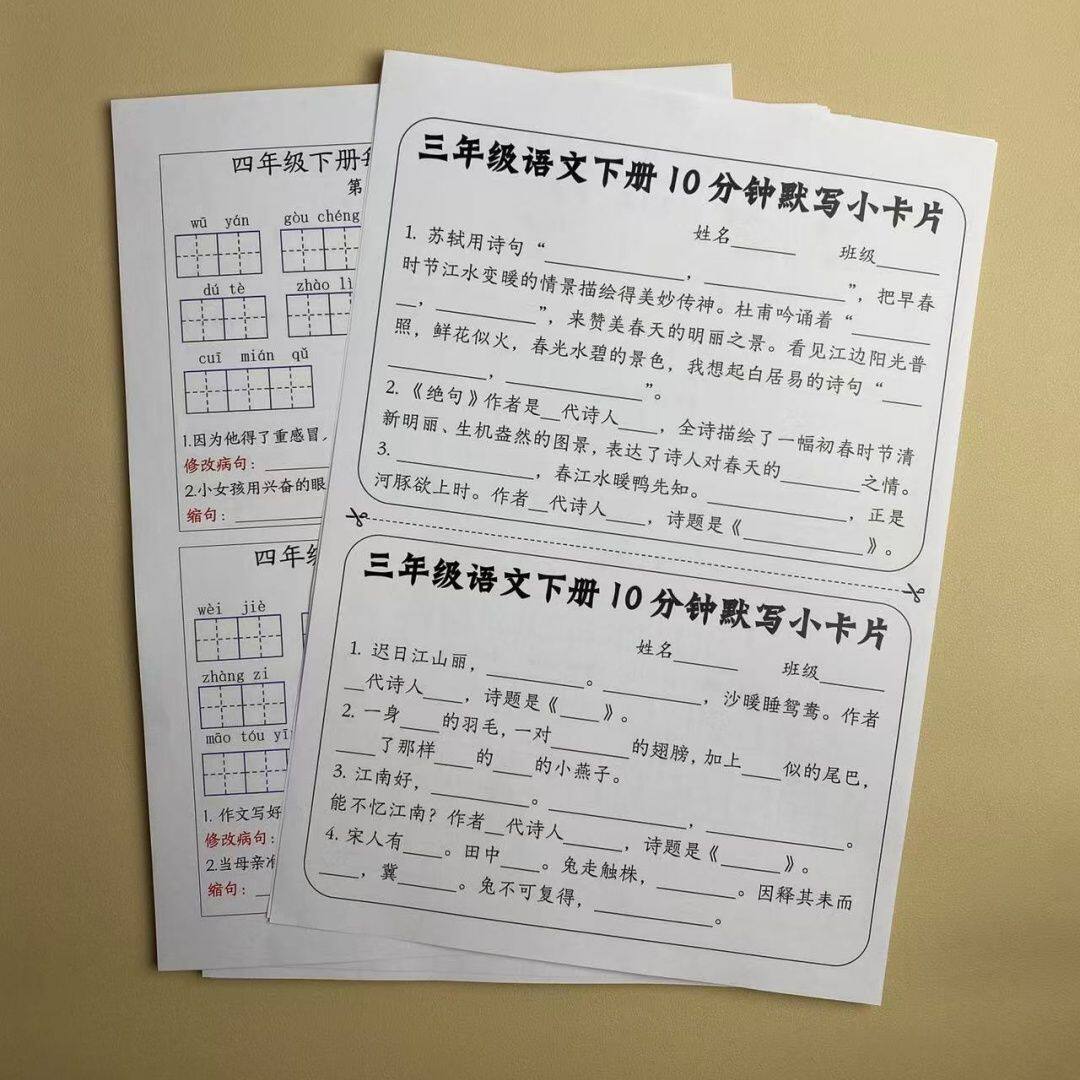 四年级下册
第
wū yán
gòu chéng
dú tè
zhào lì
cuī mián qǔ
1.因为他得了重感冒，
修改病句：
2.小女孩用兴奋的眼
缩句：
四年级
wèi jiè
zhàng zi
māo tóu yī
1. 作文写好
修改病句：
2.当母亲准
缩句：
三年级语文下册10分钟默写小卡片
姓名______ 班级______
1. 苏轼用诗句“____________，____________”，把早春
时节江水变暖的情景描绘得美妙传神。杜甫吟诵着“________
__，__________”，来赞美春天的明丽之景。看见江边阳光普
照，鲜花似火，春光水碧的景色，我想起白居易的诗句“____
________，____________”。
2.《绝句》作者是__代诗人____，全诗描绘了一幅初春时节清
新明丽、生机盎然的图景，表达了诗人对春天的________之情。
3. ____________，春江水暖鸭先知。____________，正是
河豚欲上时。作者__代诗人____，诗题是《__________》。
三年级语文下册10分钟默写小卡片
姓名______ 班级______
1. 迟日江山丽，________。________，沙暖睡鸳鸯。作者
__代诗人____，诗题是《____》。
2. 一身____的羽毛，一对________的翅膀，加上____似的尾巴，
____了那样____的____的小燕子。
3. 江南好，________。____________，____________。
能不忆江南？作者__代诗人______，诗题是《______》。
4. 宋人有____。田中____。兔走触株，________。因释其耒而
____，冀______。兔不可复得，__________。